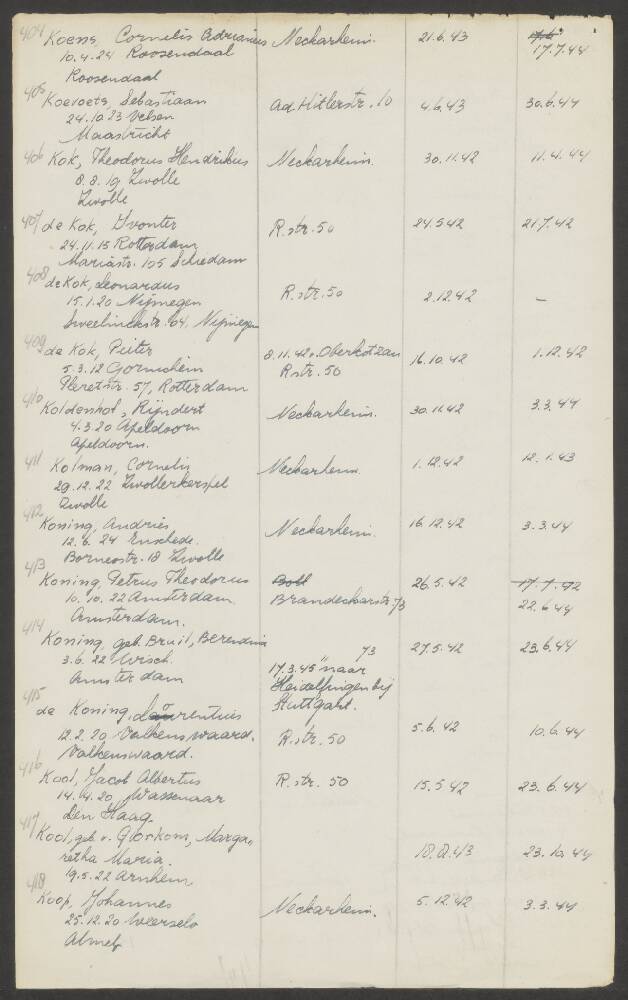 404 Koens, Cornelis Adrianus Neckarheim. 21.6.43
10.4.24 Roosendaal 17.7.44
Roosendaal
405 Koevoets, Sebastiaan Ad. Hitlerstr. 10 4.6.43 30.6.44
24.10.23 Velsen
Maastricht
406 Kok, Theodorus Hendrikus Neckarheim. 30.11.42 11.4.44
8.8.19 Zwolle
Zwolle
407 de Kok, Yvonter R.str. 50 24.5.42 21.7.42
24.11.15 Rotterdam
Mariastr. 105 Schiedam
408 de Kok, Leonardus R.str. 50 2.12.42 –
15.1.20 Nijmegen
Sweelinckstr. 64, Nijmegen
409 de Kok, Peiter 8.11.42 v. Oberkotzau 16.10.42 1.12.42
5.3.12 Gorinchem R.str. 50
57, Rotterdam
410 Koldenhof, Rijndert Neckarheim. 30.11.42 3.3.44
4.3.20 Apeldoorn
Apeldoorn.
411 Kolman, Cornelis Neckarheim 1.12.42 12.1.43
29.12.22 Zwollerkerspel
Zwolle
412 Koning, Andries Neckarheim. 16.12.42 3.3.44
12.6.24 Enschede.
Borneostr. 18 Zwolle
413 Koning, Petrus Theodorus Boll 26.5.42 17.7.42
10.10.22 Amsterdam Brandeckerstr. 73 22.6.44
Amsterdam.
414 Koning, geb. Bruil, Berendina 73 27.5.42 23.6.44
3.6.22 Wisch. 17.3.45 "naar
Amsterdam Hedelfingen bij
Stuttgart.
415 de Koning, Laurentius R.str. 50 5.6.42 10.6.44
12.2.20 Valkenswaard.
Valkenswaard.
416 Kool, Jacob Albertus R.str. 50 15.5.42 23.6.44
14.4.20 Wassenaar
Den Haag.
417 Kool, geb. v. Gorkom, Marga-
retha Maria. 23.10.44
19.5.22 Arnhem
418 Koop, Johannes Neckarheim. 5.12.42 3.3.44
25.12.20 Weerselo
Almelo